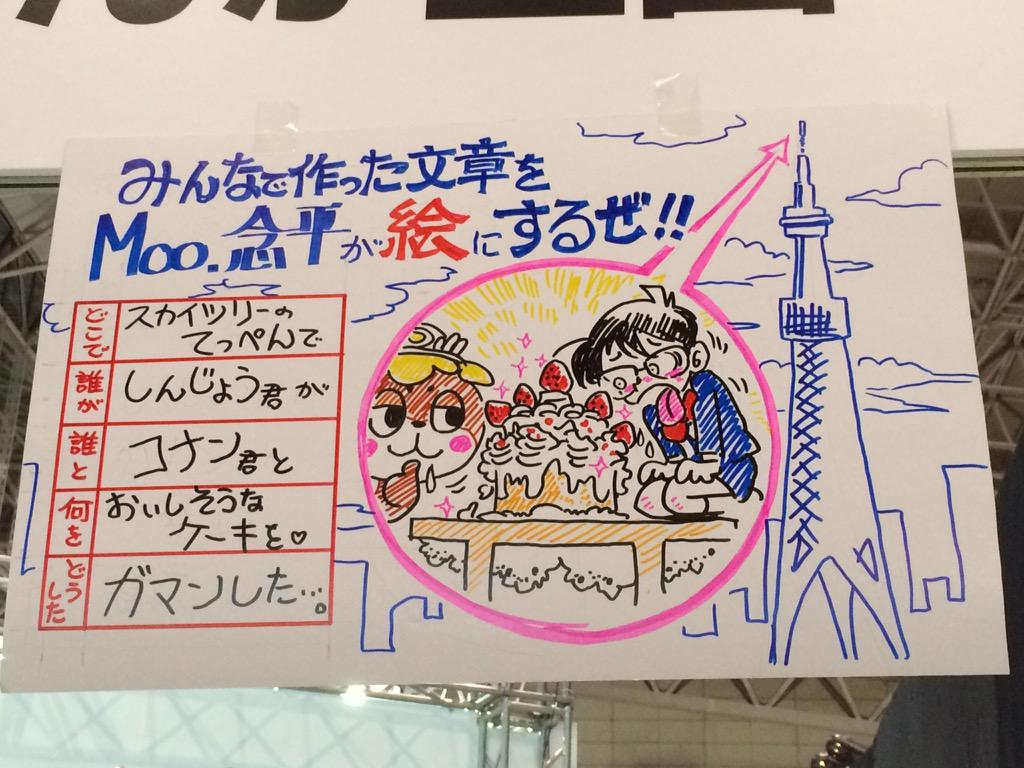 みんなで作った文章を
Moo.念平が絵にするぜ!!
どこで
スカイツリーの
てっぺんで
誰が
しんじょう君が
誰と
コナン君と
何を
おいしそうな
ケーキを♡
どうした
ガマンした…。